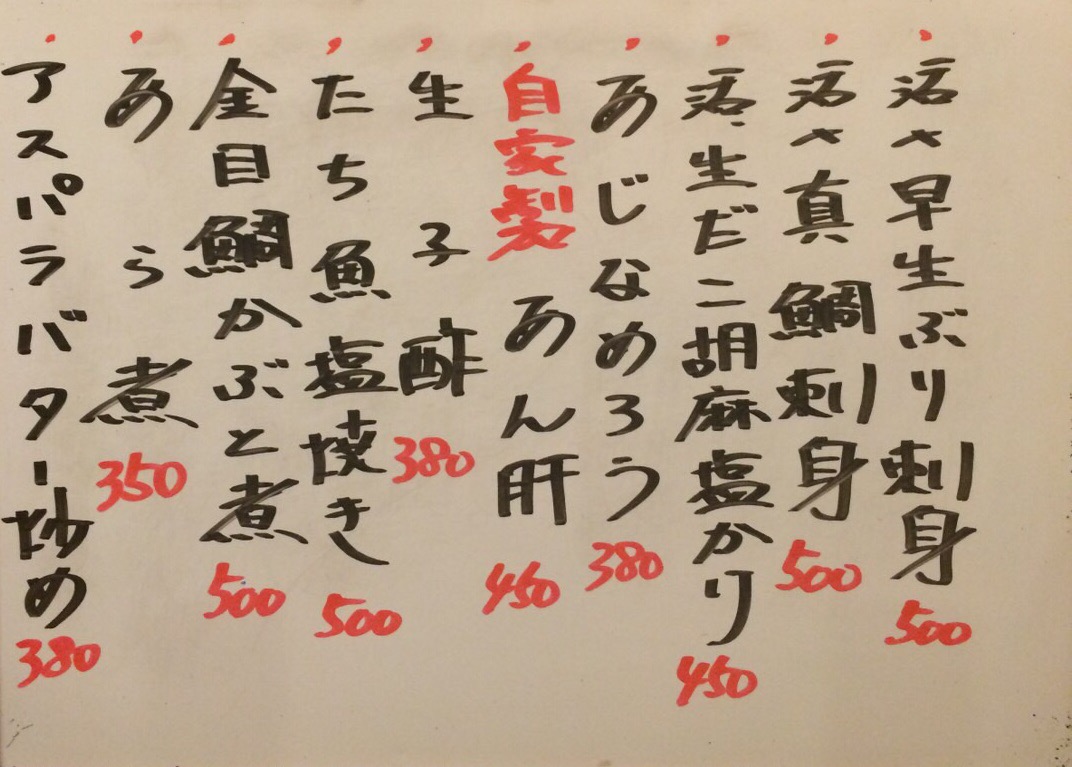 ・活〆早生ぶり刺身 500
・活〆真鯛刺身 500
・活、生だこ胡麻塩かり 450
・あじなめろう 380
・自家製あん肝 450
・生子酢 380
・たち魚塩焼き 500
・金目鯛かぶと煮 500
・あら煮 350
・アスパラバター炒め 380